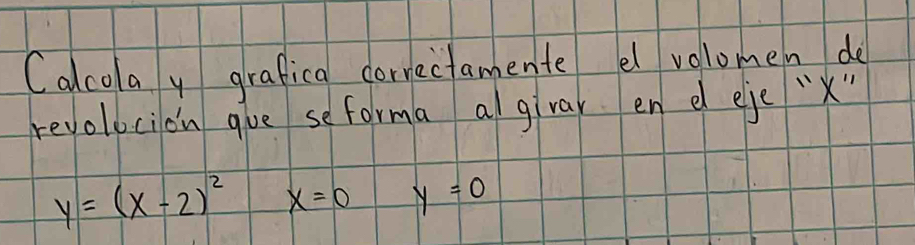 Calcola y grafica correctamente el volomen de
revolución que se forma al girar en el eje "X"
y = (x - 2)² x = 0 y = 0